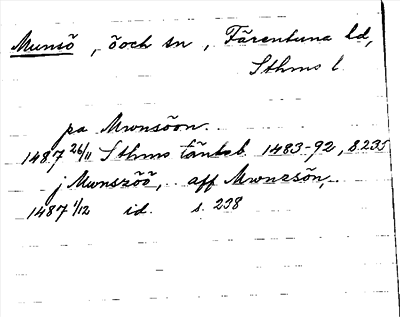 Munsö, ö och sn, Färentuna hd,
Sthms l.
pa Mwnsöon.
1487 26/11 Sthms tänkeb. 1483-92, s. 235
j Mwnszöö, aff Mwnesön,
1487 1/12 id. s. 238